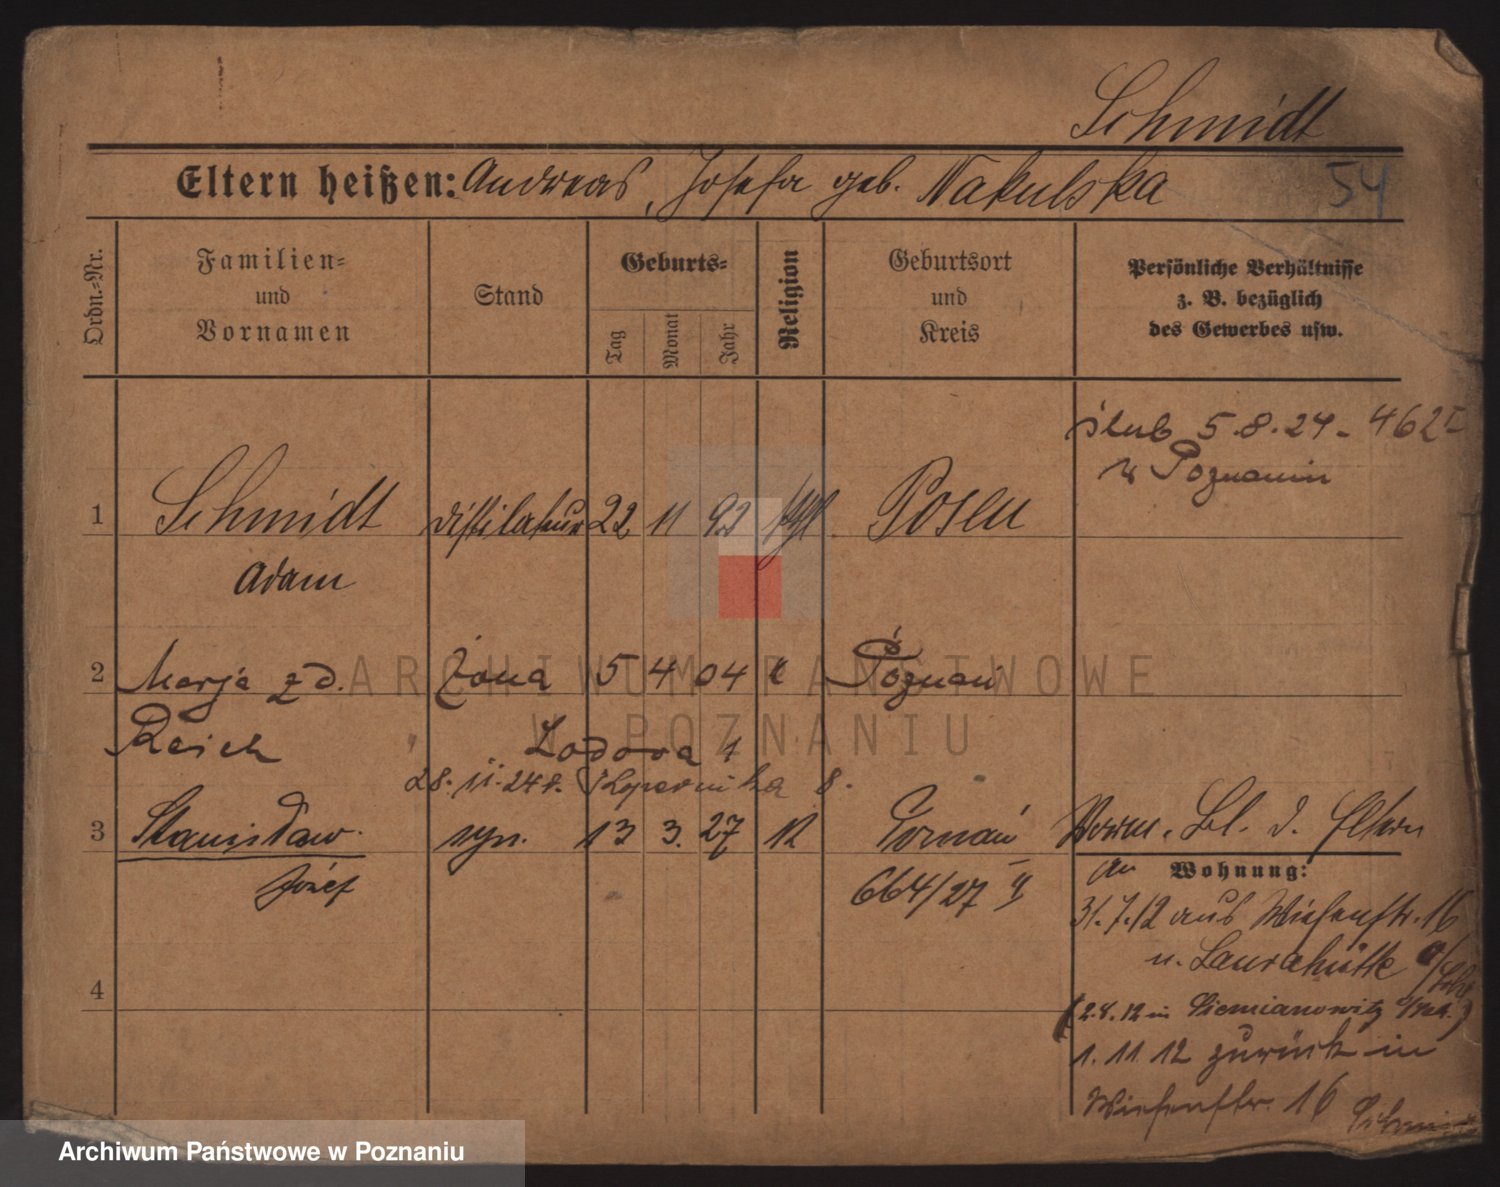 Schmidt
Eltern heißen: Andreas, Josefa geb. Nakulska
54
Ordn.-Nr.
Familien-
und
Vornamen
Stand
Geburts-
Tag
Monat
Jahr
Religion
Geburtsort
und
Kreis
Persönliche Verhältnisse
z. B. bezüglich
des Gewerbes usw.
ślub 5.8.24 - 462 I
w Poznaniu
1 Schmidt Distilateur 22 11 92 Posen
Adam
2 Marja z d. żona 5 4 04 k Poznań
Reich
28.11.24 r. Kopernika 8.
3 Stanisław syn. 13 3. 27 k Poznań Verm. Bl. d. Eltern
Józef
664/27 II
an Wohnung:
31.7.12 aus Wiesenstr. 16
n. Laurahütte
4
(2.8.12 in Siemianowitz
1.11.12 zurück in
Wiesenstr. 16
ARCHIWUM PAŃSTWOWE
W POZNANIU
Archiwum Państwowe w Poznaniu